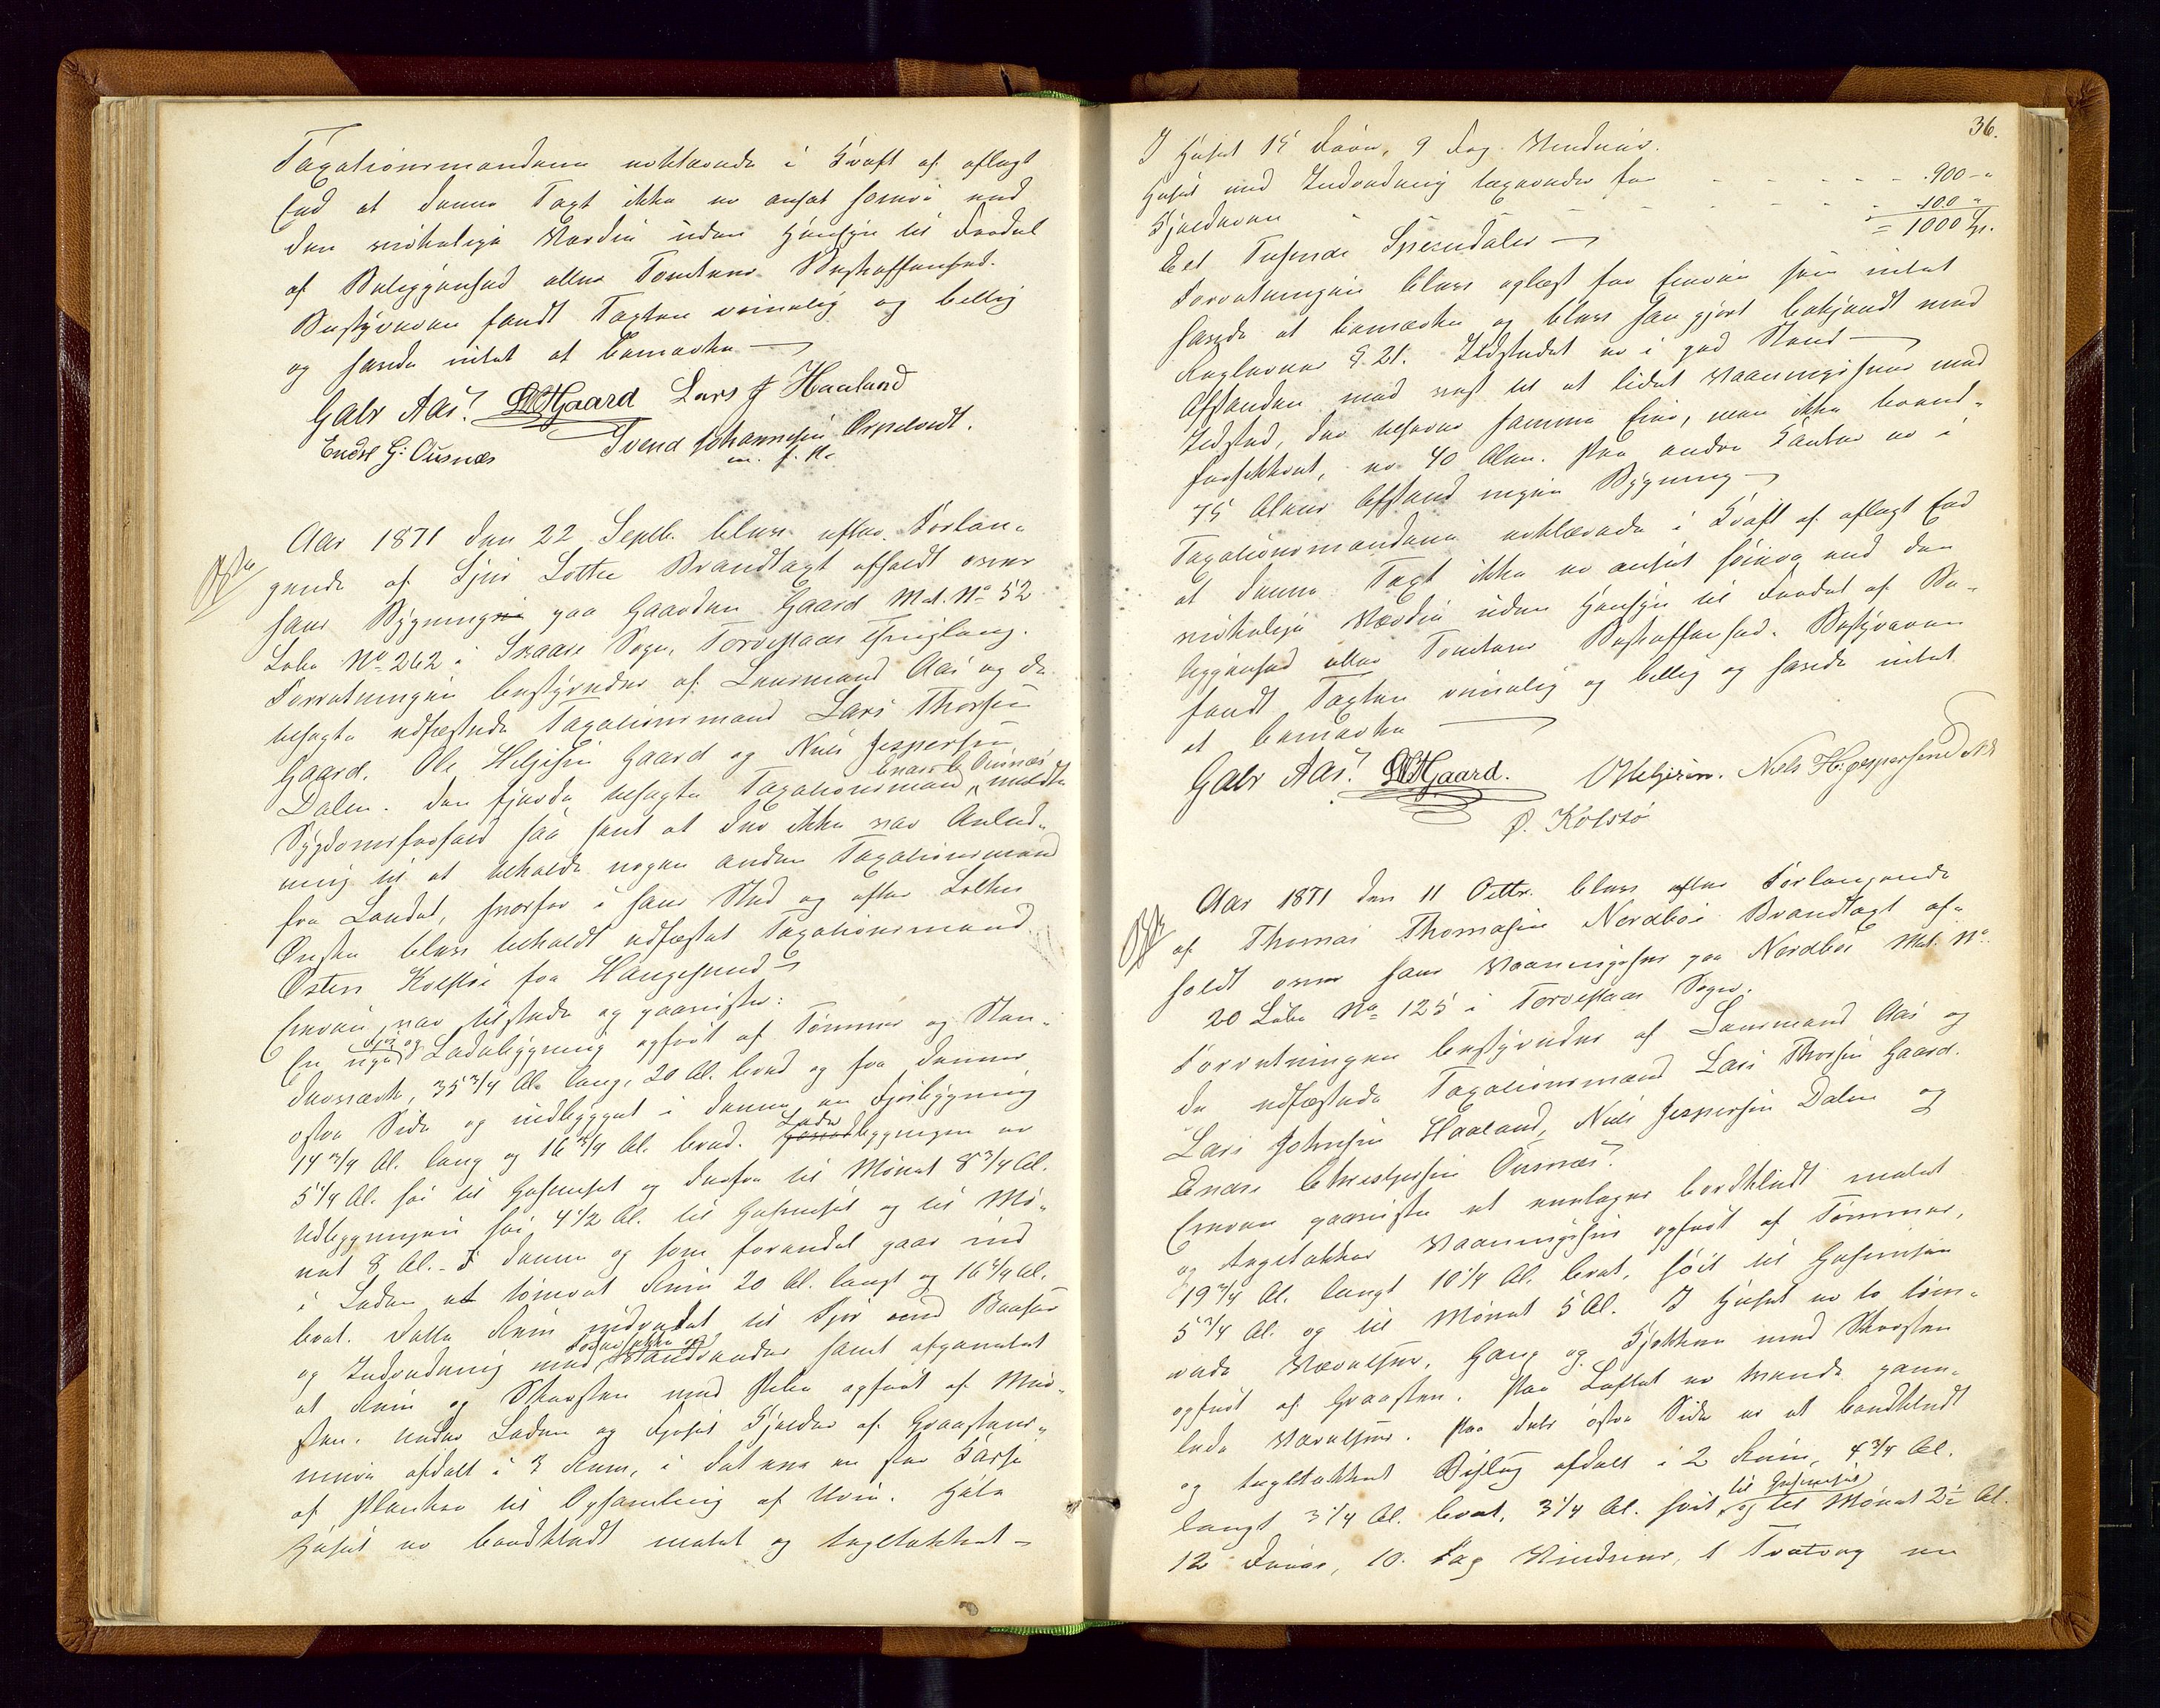 Taxationsmændene erklærede i Kraft af aflagt
Eed at denne Taxt ikke er ansat høiere end
den virkelige Værdie uden Hensyn til Fordel
af Beliggenhed eller Tomtens Beskaffenhed.
Bestyreren fandt Taxten rimelig og billig
og havde intet at bemærke —
Gabr Aas. LTHGaard Lars J Haaland
Endre G: Ousnæs Svend Johannesen Ørpetvedt.
m. f. P.
Aar 1871 den 22 Septb. blev efter Forlan-
gende af Hr Lothe Brandtaxt afholdt over
hans Bygning paa Gaarden Gaard Mat. No 52
Løbe No 262 i Skaare Sogn, Torvestad Thinglaug.
Forretningen bestyredes af Lensmand Aas og de
opnævnte edfæstede Taxationsmænd Lars Thorsen
Gaard, Ole Helgesen Gaard og Niels Jespersen
Dalen. Den fjerde opnævnte Taxationsmand Endre G. Ousnæs meldte
Sygdomsforfald saa sent at der ikke var Anled-
ning til at tilkalde nogen anden Taxationsmand
fra Landet, hvorfor i hans Sted og efter Lothes
Ønske blev tilkaldt edfæstet Taxationsmand
Østen Kolstø fra Haugesund —
Eieren var tilstede og paaviste:
En ny Fjøs og Ladebygning opført af Tømmer og Stan-
derværk, 35 3/4 Al. lang, 20 Al. bred og fra dennes
østre Side og indbygget i denne en Fjøsbygning
14 3/4 Al. lang og 16 3/4 Al. bred. Ladebygningen er
5 1/4 Al. høi til Gesimset og derfra til Mønet 8 3/4 Al.
Udbygningen høi 4 1/2 Al. til Gesimset og til Mø-
net 8 Al. I denne og som forendet gaar ind
i Laden et tømret Rum 20 Al. langt og 16 3/4 Al.
bredt. Dette Rum indredet til Fjøs med Baase
og Indredning med Foderhække og Vandrender samt afpanelet
et Rum og Skorsten med Pibe opført af Mur-
sten. Under Laden og Fjøset Kjelder af Graasteens-
mure afdelt i 3 Rum, i det ene en stor Kasse
af Planker til Opsamling af Urin. Hele
Huset er bordklædt malet og tagltækket —
36.
I Huset 15 Døre, 9 Fag Vinduer.
Huset med Indredning taxeredes for - - - - - 900 - "
Kjelderen - - - - - - 100 "
= 1000 Sp.
Eet Tusinde Speciedaler —
Forretningen blev oplæst for Eieren som intet
havde at bemærke og blev han gjort bekjendt med
Reglernes §. 21. Ildstedet er i god Stand —
Afstanden mod vest til et lidet Vaaningshuus med
Ildsted, der tilhører samme Eier, men ikke brand-
forsikkret, er 40 Alen. Paa andre Kanter er i
75 Alens Afstand ingen Bygning —
Taxationsmændene erklærede i Kraft af aflagt Eed
at denne Taxt ikke er ansat høiere end den
virkelige Værdie uden Hensyn til Fordel af Be-
liggenhed eller Tomtens Beskaffenhed. Bestyreren
fandt Taxten rimelig og billig og havde intet
at bemærke —
Gabr Aas. LTHGaard. OHelgesen. Niels H: Jespersen Dalen
Ø. Kolstø
Aar 1871 den 11 Octbr. blev efter Forlangende
af Thomas Thomasen Nordbø Brandtaxt af-
holdt over hans Vaaningshus paa Nordbø Mat. No
20 Løbe No 125 i Torvestad Sogn.
Forretningen bestyredes af Lensmand Aas og
de edfæstede Taxationsmænd Lars Thorsen Gaard.
Lars Johnsen Haaland, Niels Jespersen Dalen og
Endre Christophersen Ousnæs.
Eieren paaviste et eenetages bordklædt malet
og tagltækket Vaaningshus opført af Tømmer,
19 3/4 Al. langt 10 1/4 Al. bredt, høit til Gesimsen
5 3/4 Al. og til Mønet 5 Al. I Huset er to tøm-
rede Værelser, Gang og Kjøkken med Skorsten
opført af Graasten. Paa Loftet er trende pane-
lede Værelser. Paa dets østre Side er et bordklædt
og tagltækket Bislag afdelt i 2 Rum, 4 3/4 Al.
langt 3 1/4 Al. bredt, 3 1/4 Al. høit til Gesimset og til Mønet 2 1/2 Al.
12 Døre, 10 Fag Vinduer, 1 Trætrap en